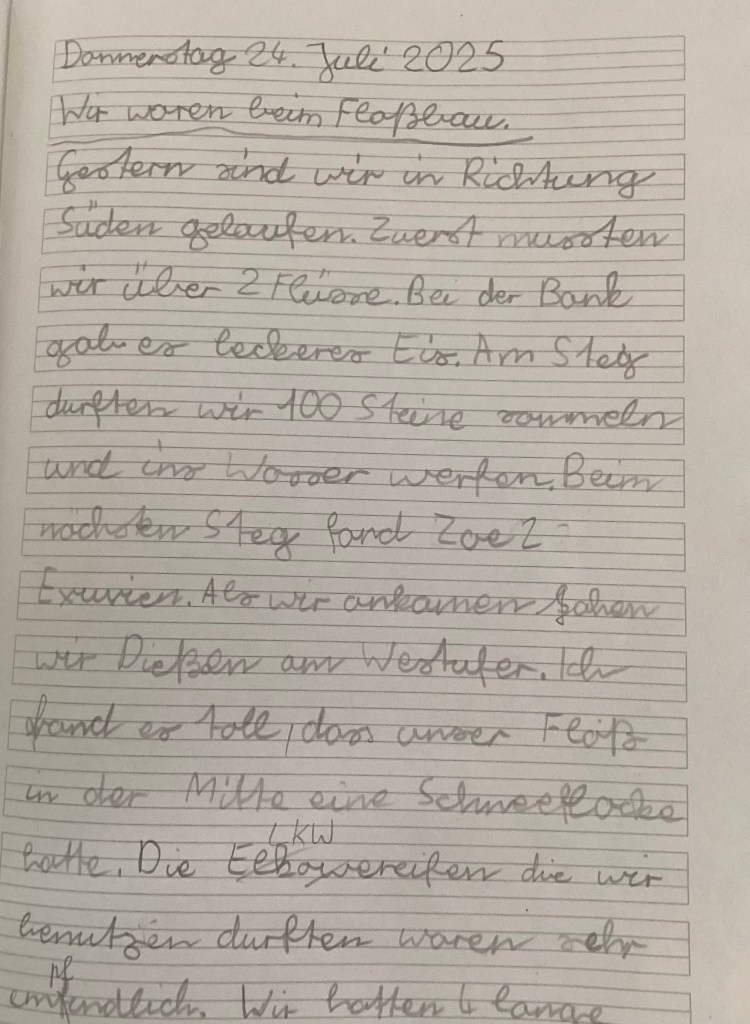 Donnerstag 24. Juli 2025
Wir waren beim Floßbau.
Gestern sind wir in Richtung
Süden gelaufen. Zuerst mussten
wir über 2 Flüsse. Bei der Bank
gab es leckeres Eis. Am Steg
durften wir 100 Steine sammeln
und ins Wasser werfen. Beim
nächsten Steg fand Zoe 2
Exuvien. Als wir ankamen sahen
wir Dießen am Westufer. Ich
fand es toll, dass unser Floß
in der Mitte eine Schneeflocke
LKW
hatte. Die Elkawereifen die wir
benutzen durften waren sehr
pf
emfindlich. Wir hatten 4 lange